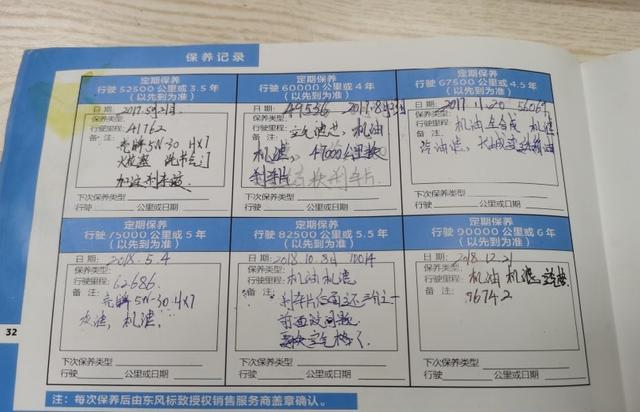 保养记录
定期保养
行驶 52500 公里或 3.5 年
(以先到为准)
日期: 2017.5月21日
保养类型:
行驶里程: 41762
备 注: 壳牌5W-30 HX7
火花塞
加注刹车油
下次保养类型
行驶 公里或日期
定期保养
行驶 60000 公里或 4 年
(以先到为准)
49536 2017.8月
空气滤芯, 机油
机滤, 47000公里换
刹车片
后换刹车片
下次保养类型
行驶 公里或日期
定期保养
行驶 67500 公里或 4.5 年
(以先到为准)
日期: 2017.11.20 56069
保养类型:
行驶里程: 机油全合成 机滤
备 注: 汽油滤,
下次保养类型
行驶 公里或日期
定期保养
行驶 75000 公里或 5 年
(以先到为准)
日期: 2018.5.4
保养类型:
行驶里程: 62686
备 注: 壳牌5W-30 HX7
机滤.
下次保养类型
行驶 公里或日期
定期保养
行驶 82500 公里或 5.5 年
(以先到为准)
日期: 2018.10.8日
保养类型: 机油机滤
行驶里程:
备 注: 刹车片后面还三分之一
前面没问题
空气格了
下次保养类型
行驶 公里或日期
定期保养
行驶 90000 公里或 6 年
(以先到为准)
日期: 2018.12.21
保养类型:
行驶里程: 机油 机滤
备 注: 76742
下次保养类型
行驶 公里或日期
32
注: 每次保养后由东风标致授权销售服务商盖章确认。